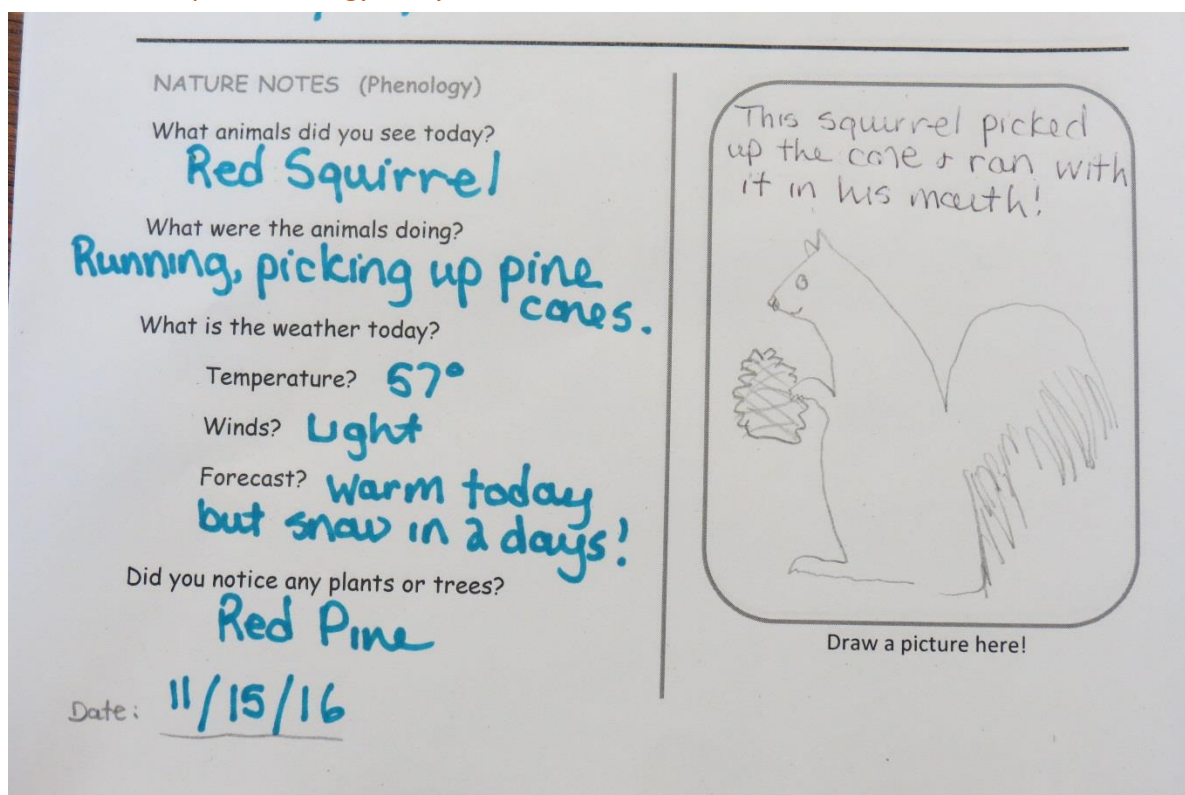 NATURE NOTES (Phenology)
What animals did you see today?
Red Squirrel
What were the animals doing?
Running, picking up pine
cones.
What is the weather today?
Temperature? 57°
Winds? Light
Forecast? Warm today
but snow in 2 days!
Did you notice any plants or trees?
Red Pine
Date: 11/15/16
This squirrel picked
up the cone & ran with
it in his mouth!
Draw a picture here!